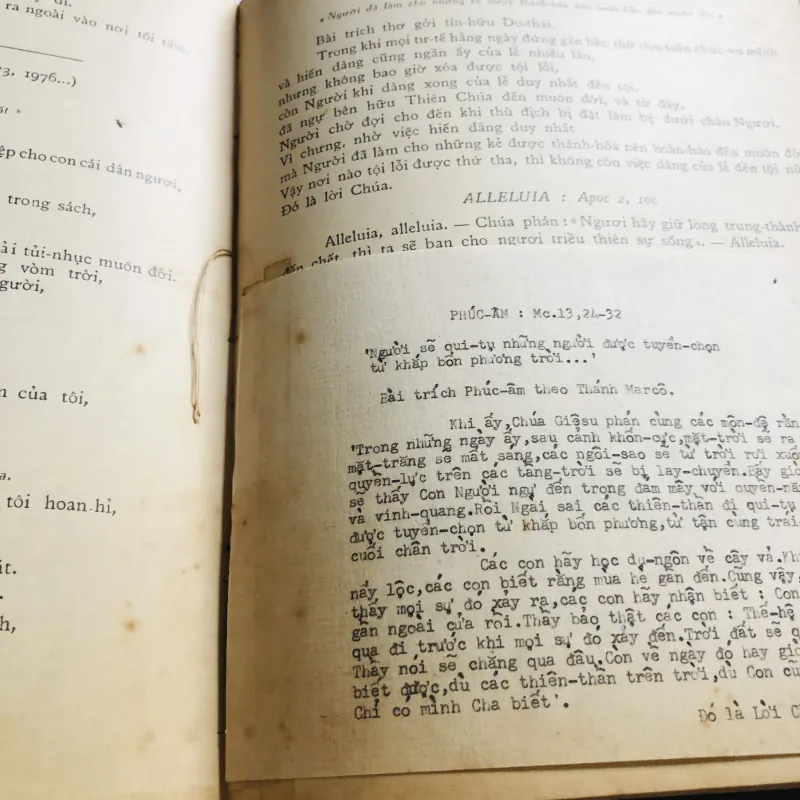 đi.
ra ngoài vào nơi tối tăm.
73, 1976...)
ệp cho con cái dân ngươi,
trong sách,
ải tủi-nhục muôn đời.
g vòm trời,
gười,
n của tôi,
a.
tôi hoan-hỉ,
át.
h,
« Người đã làm cho những kẻ được thánh-hóa nên hoàn-hảo đến muôn đời »
Bài trích thơ gởi tín-hữu Do-thái.
Trong khi mọi tư-tế hằng ngày đứng gần bàn thờ chu-toàn chức-vụ mình
và hiến dâng cũng ngần ấy của lễ nhiều lần,
nhưng không bao giờ xóa được tội lỗi,
còn Người khi dâng xong của lễ duy nhất đền tội,
đã ngự bên hữu Thiên Chúa đến muôn đời, và từ đây,
Người chờ đợi cho đến khi thù địch bị đặt làm bệ dưới chân Người.
Vì chưng, nhờ việc hiến dâng duy nhất
mà Người đã làm cho những kẻ được thánh-hóa nên hoàn-hảo đến muôn đời
Vậy nơi nào tội lỗi được thứ tha, thì không còn việc dâng của lễ đền tội nữ
Đó là lời Chúa.
ALLELUIA : Apoc 2, 10c
Alleluia, alleluia. — Chúa phán : « Ngươi hãy giữ lòng trung-thành
đến chết, thì ta sẽ ban cho ngươi triều thiên sự sống ». — Alleluia.
PHÚC-ÂM : Mc.13,24-32
'Người sẽ qui-tụ những người được tuyển-chọn
từ khắp bốn phương trời...'
Bài trích Phúc-âm theo Thánh Marcô.
Khi ấy,Chúa Giêsu phán cùng các môn-đệ rằn
'Trong những ngày ấy,sau cảnh khốn-cực,mặt-trời sẽ ra
mặt-trăng sẽ mất sáng,các ngôi-sao sẽ từ trời rơi xuốn
quyền-lực trên các tầng-trời sẽ bị lay-chuyển.Bấy giờ
sẽ thấy Con Người ngự đến trong đám mây với quyền-năn
và vinh-quang.Rồi Ngài sai các thiên-thần đi qui-tụ
được tuyển-chọn từ khắp bốn phương,từ tận cùng trái
cuối chân trời.
Các con hãy học dụ-ngôn về cây vả.Khi
nẩy lộc,các con biết rằng mùa hè gần đến.Cũng vậy,
thấy mọi sự đó xảy ra,các con hãy nhận biết : Con
gần ngoài cửa rồi.Thầy bảo thật các con : Thế-hệ
qua đi trước khi mọi sự đó xảy đến.Trời đất sẽ q
Thầy nói sẽ chẳng qua đâu.Còn về ngày đó hay giờ
biết được,dù các thiên-thần trên trời,dù Con cũn
Chỉ có mình Cha biết'.
Đó là Lời C